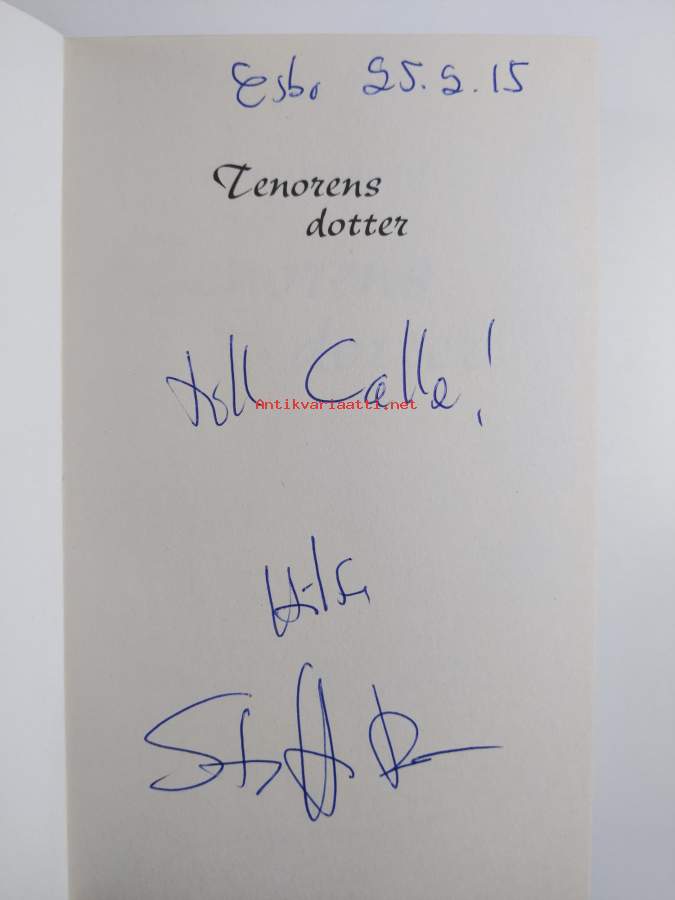 Esbo 25.2.15
Tenorens
dotter
till Calle!
Antikvariaatti.net